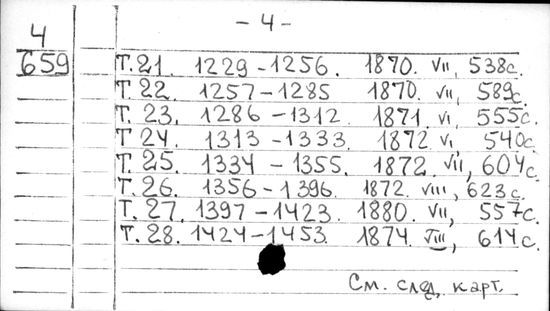 - 4 -
4
659
Т.21. 1229-1256. 1870. VII, 538с.
Т.22. 1257-1285 1870. VII, 589с.
Т.23. 1286-1312. 1871 VI, 555с.
Т 24. 1313-1333. 1872 VI, 540с.
Т.25. 1334-1355. 1872. VII, 604с.
Т.26. 1356-1396. 1872. VIII, 623с.
Т.27. 1397-1423. 1880. VII, 557с.
Т.28. 1424-1453. 1874. VIII, 614с.
См. след. карт.